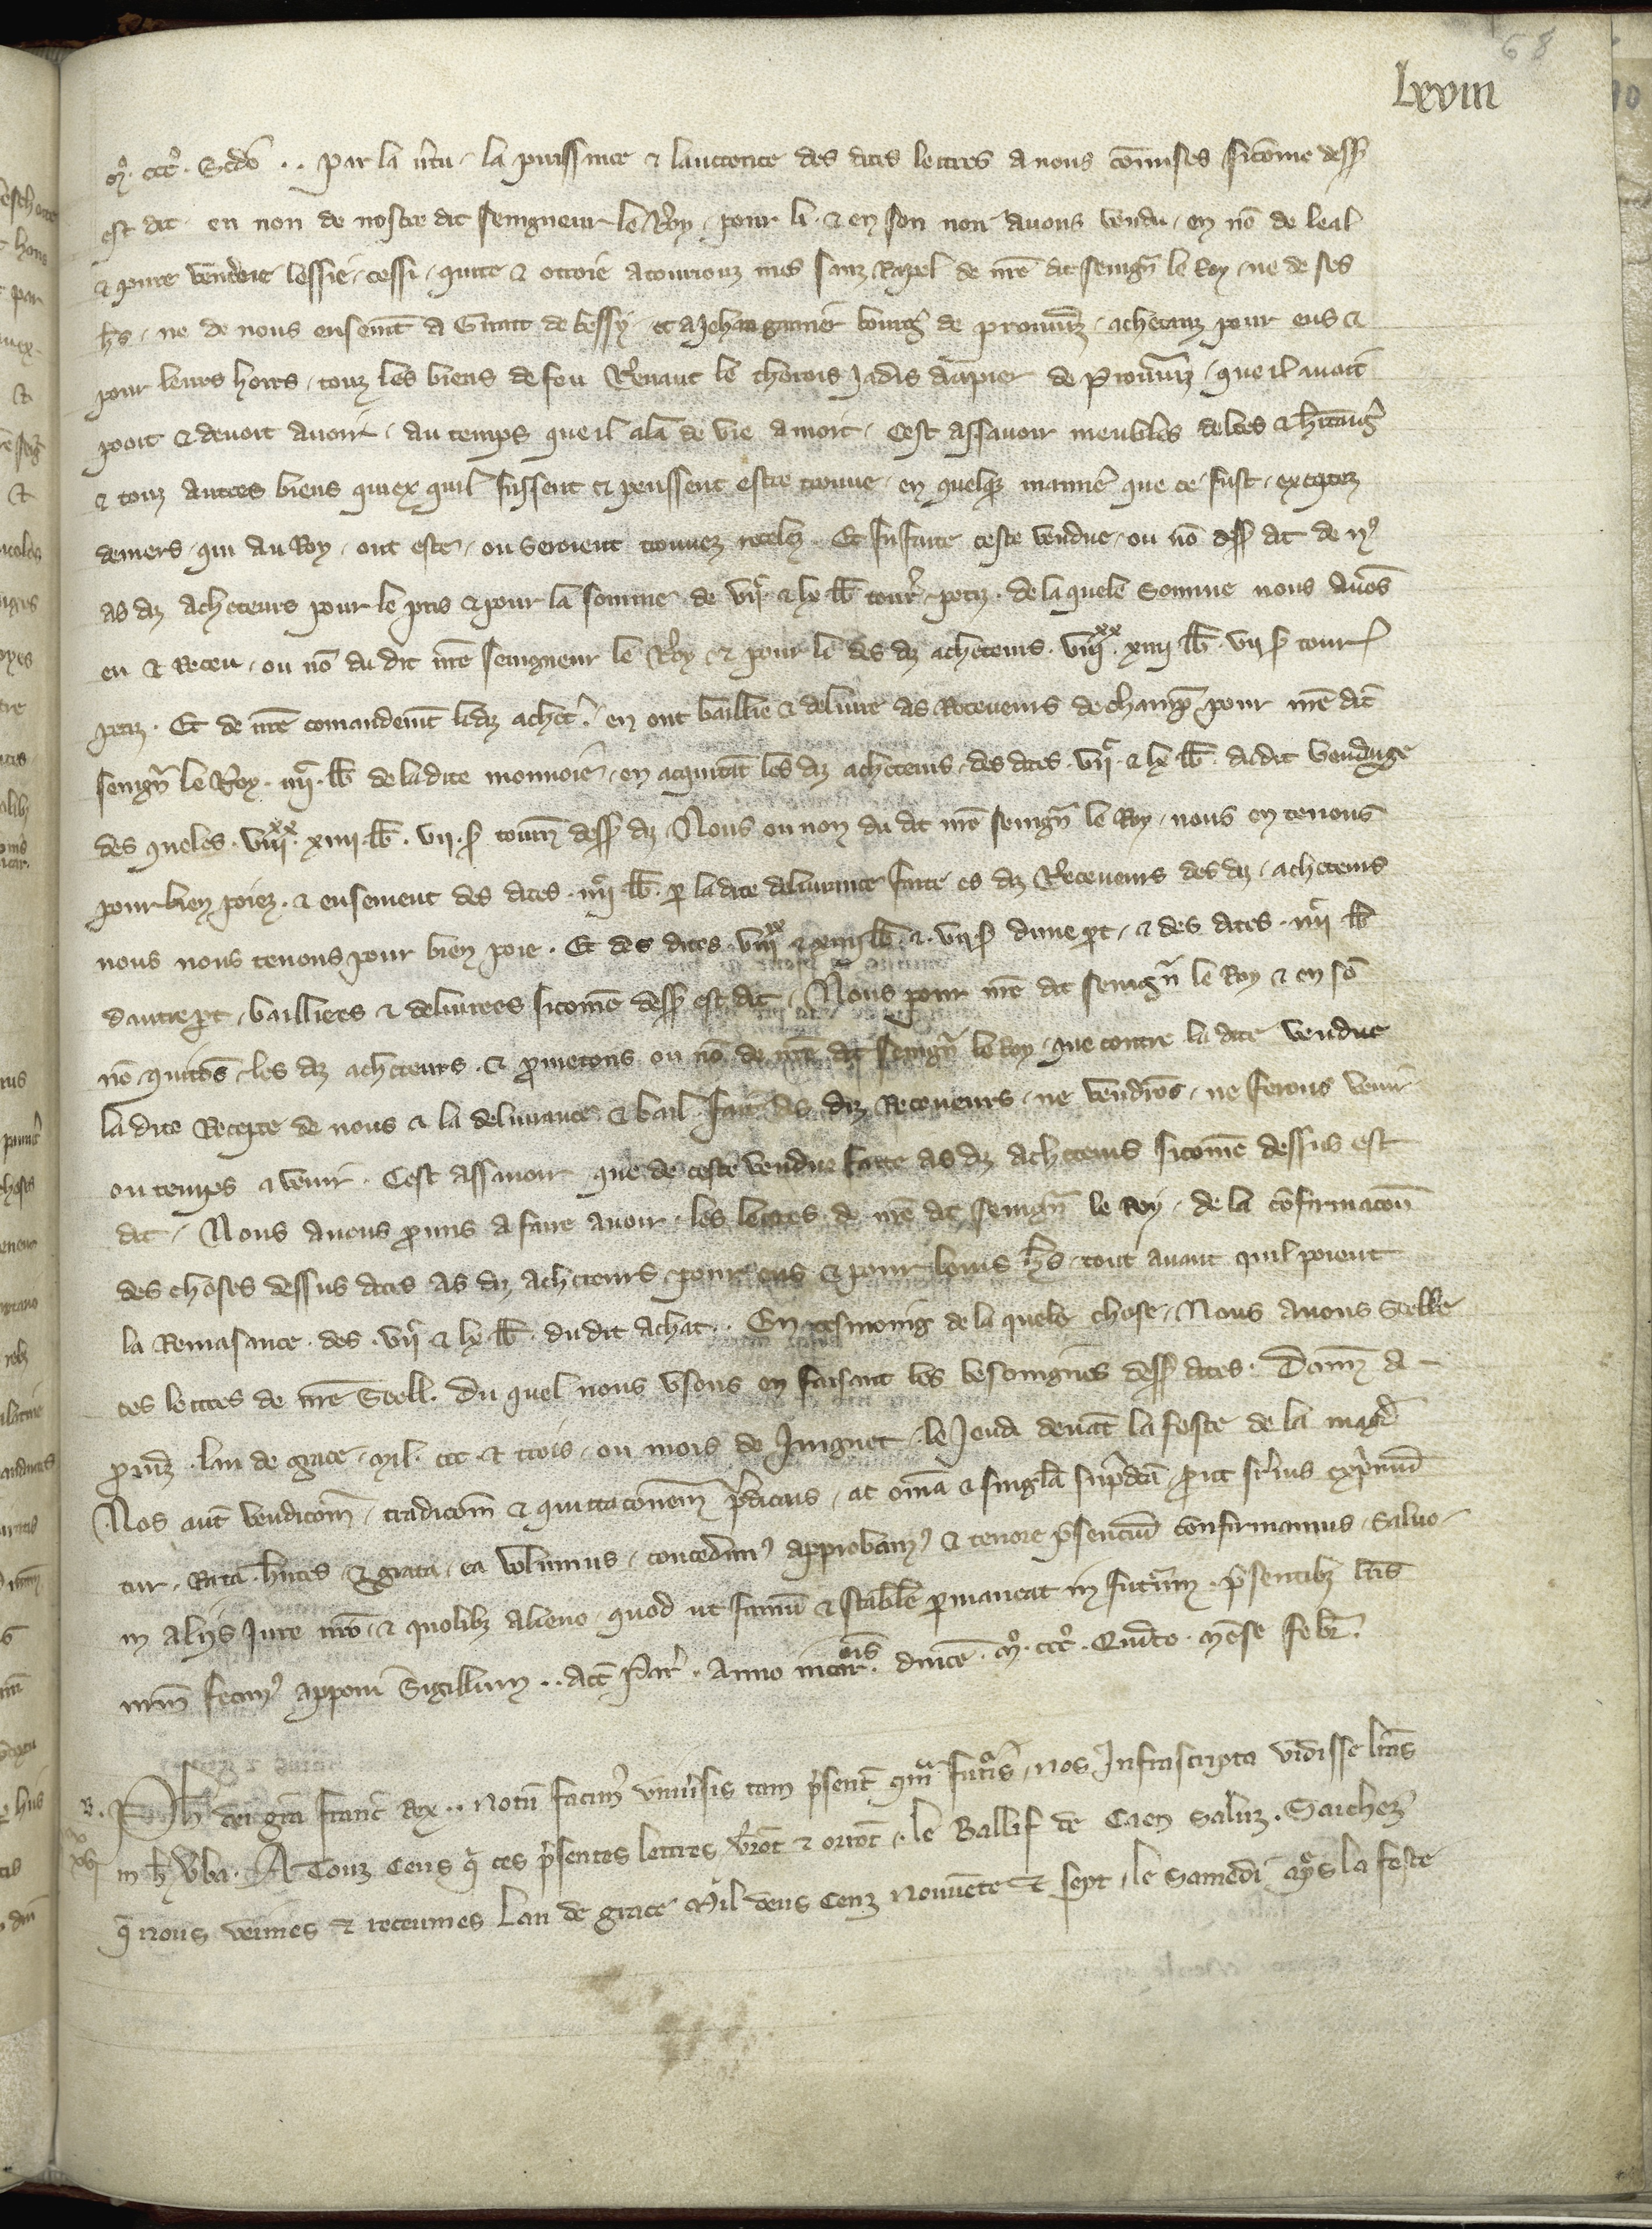 68
Lxviii
mº. cccº. Scdo .. par la vtu la puissance & lauctorite des dites lettres a nous comises sicome dess
est dit en non de nostre dit seingneur le Roy pour li & en son non avons vendu en no de leal
& pure vendue lessie cessi quitte & ottroie a touriouz mes sanz rapel de nre dit seingn le Roy ne de ses
hs ne de nous ensemt a Girart de bessy et a Jehan garnier bourg de prouuinz achetanz pour eus &
pour leurs hoirs touz les biens de feu Renaut le chocois jadis drapier de Prouuinz que il avoit
pooit & devoit avoir au temps que il ala de vie a mort Cest assavoir meubles debtes & hitaug
& touz autres biens quiex quil fussent & peussent estre trouve en quelq maniere que ce fust exceptez
deniers qui au Roy ont este ou seroient trouvez recelez Et fu faite ceste vendue ou no dess dit de n9
as diz acheteurs pour le pris & pour la somme de vijc & lx lb tour petiz de la quele somme nous avos
eu & receu ou no du dit nre seingneur le Roy & pour li des diz acheteurs viijxx xiiij lb vij s tour
petiz Et de nre comandemt lesdiz achet en ont baillie & delivre as Receveurs de champ pour nre dit
seingn le Roy iiijc lb de ladite monnoie en acquitat les diz acheteurs des dites vijc & lx lb dudit vendage
des queles viijxx xiiij lb vij s tourn dess diz Nous ou non du dit nre seingn le Roy nous en tenons
pour bien poiez & ensement des dites iiijc lb p ladite delivrance faite es diz Receveurs des diz acheteurs
nous nous tenons pour bien poie Et des dites viijxx & xiiij lb & vij s dune pt & des dites iiijc lb
dautre pt bailliees & delivrees sicome dess est dit Nous pour nre dit seingn le Roy & en so
no quitos les diz acheteurs & pmetons ou no de nre dit seingn le Roy que contre la dite vendue
la dite Recepte de nous & la delivrance & bail fait as diz Receveurs ne vendros ne ferons venir
ou temps a venir Cest assavoir que de ceste vendue faite as diz acheteurs sicome dessus est
dit Nous avons pmis a faire avoir les lettres de nre dit seingn le Roy de la confirmacon
des choses dessus dites as diz acheteurs pour eus & pour leurs hs tout avant quil poient
la Remasance des vijc & lx lb du dit achat En tesmoing de la quele chose Nous avons Seelle
ces lettres de nre Seell. du quel nous usons en faisant les besoingnes dess dites. Donn a
puinz lan de grace mil ccc & trois ou mois de Juignet le Jeudi devat la feste de la magd
Nos aut vendicom tradicom & quittaconem pdictas ac oma & singla supdca put supius expmut
tur Rata hntes & grata ea volumus concedim9 approbam9 & tenore psentiu confirmamus Salvo
in aliis Jure nro & quolibz alieno quod ut firmu & stabile pmaneat in futurum psentibz lris
nrm fecim9 apponi Sigillum .. act Par anno incarois dnice mº. cccº. Quito mense febr.
B. Ph dei gra franc Rex .. notu facim9 univsis tam psent qm futis nos Infrascripta vidisse lras
in h vba. A Touz Ceus q ces psentes lettres vrot & orrot le Ballif de Caen Saluz. Saichez
q nous veimes & receumes Lan de grace Mil deus Cenz Nonuete & sept le Samedi aps la feste